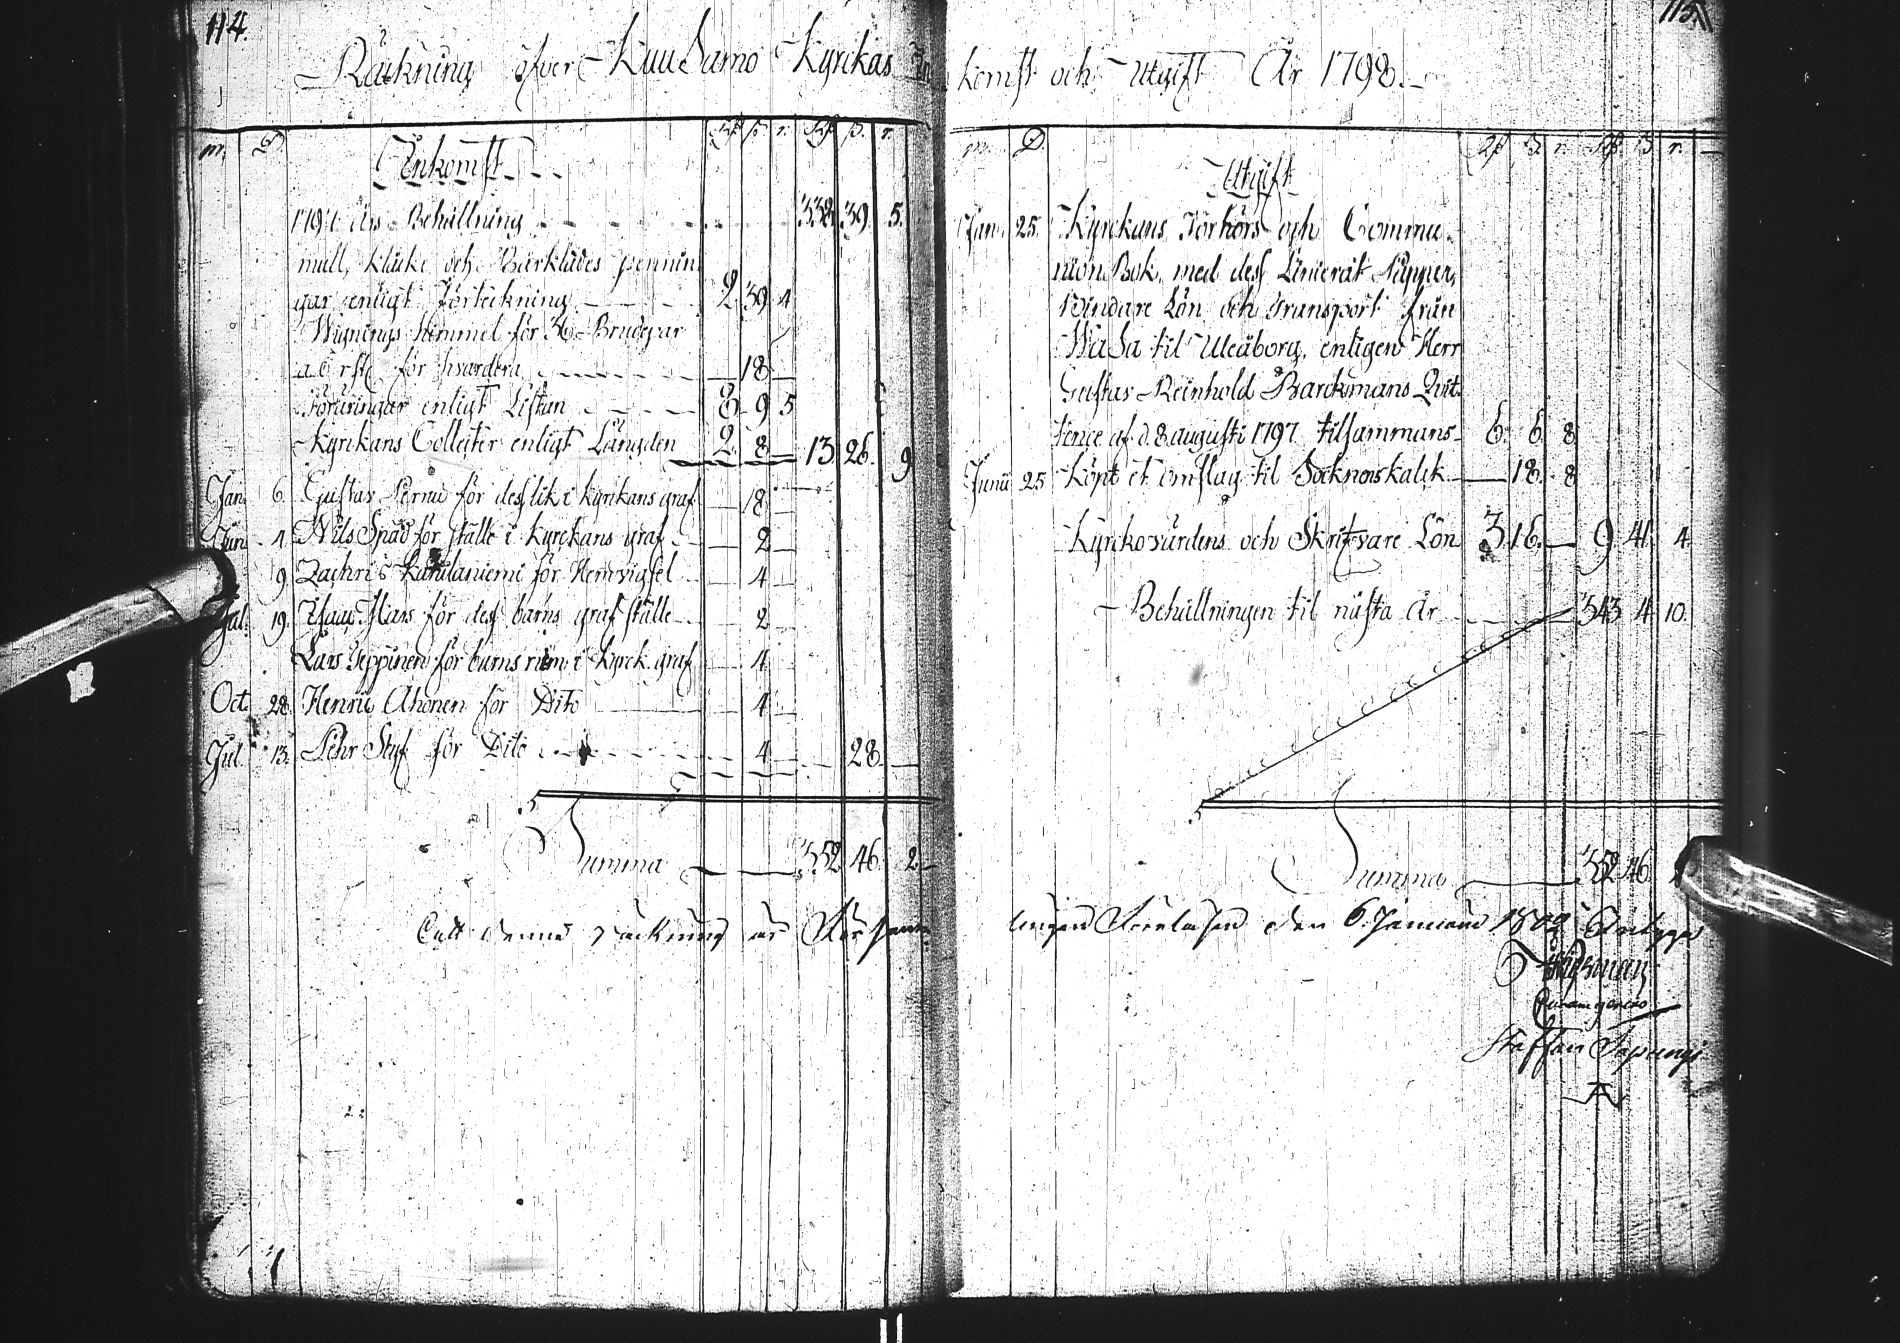 114.
Räkning öfver Kuusamo Kyrckas In
m. D. Rd ß. r. Rd ß. r.
Inkomst
1797 Års Behållning 338. 39. 5.
mull, klåcke och Bårklädes pennin
gar enligt förteckning 2 39 4
Wignings himmel för 36 Brudepar
a 6 rst för hvardera 18
Föräringar enligt Listan 8 9 5
Kyrckans Collecter enligt Längden 2 8 13 26. 9
Jan. 6. Gustav för dess lik i kyrckans graf 18
Jun. 4. Nils för ställe i Kyrckans graf 2
9. Zachris för Hemvigsel 4
Jul. 19. Hans för dess barns graf ställe 2
Lars Seppinen för barns rum i Kyrck graf 4
Oct. 28. Henric Ahonen för Dito 4
Jul. 13. Pehr för Dito 4 28.
Summa 352 46 2
Att denna räckning är för
115.
komst och Utgift År 1798.
m. D. Rd ß. r. Rd ß r.
Utgift
Jan. 25. Kyrckans Förhörs och Commu
nion Bok, med dess Linierat Papper,
Bindare Lön och Transport från
Wasa til Uleåborg, enligen Herr
Gustav Reinhold Barckmans Qvit
tence af d. 8 augusti 1797 tilsammans 6 6 8
Junii 25 Köpt et omslag til Socknens kalk 18. 8
Kyrckovärdens och Skrifvare Lön 3 16. 9 41 4
Behållningen til nästa År 343 4 10.
Summa 352 46
den 6. Januarii
Staffan